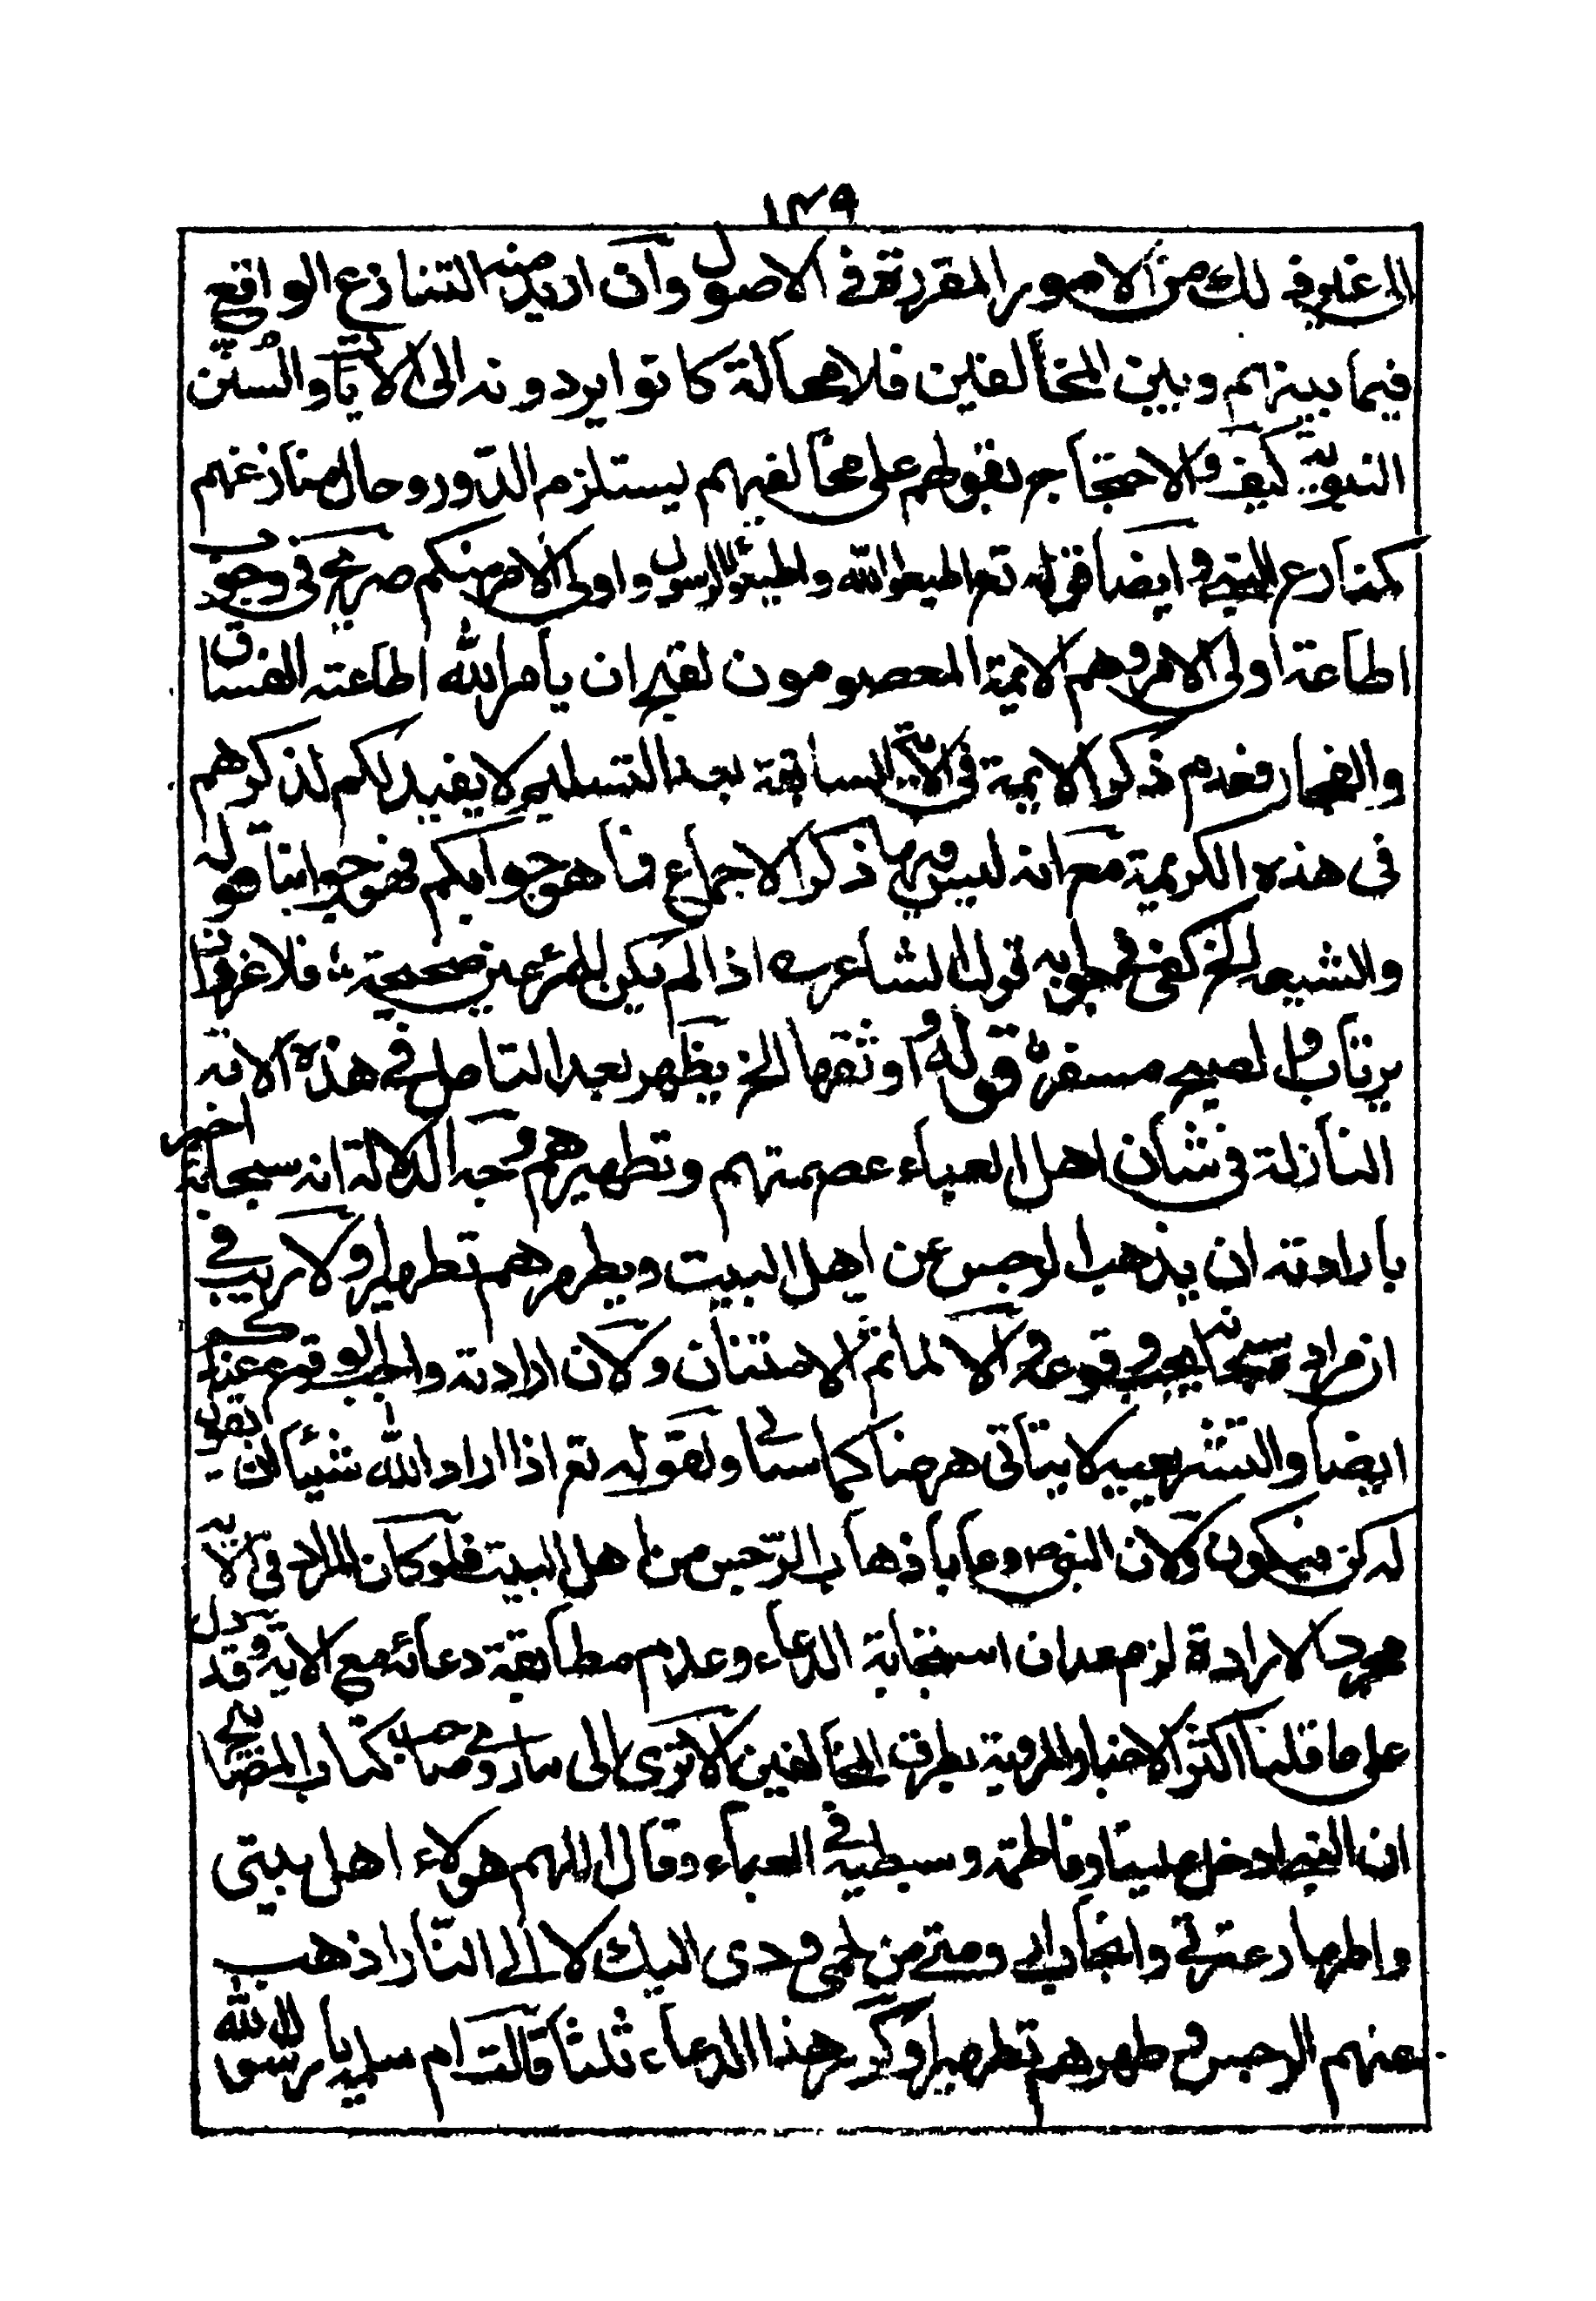 ١٣٩
الى غير ذلك من الامور المقررة فى الاصول وان اريد منه التنازع الواقع
فيما بينهم وبين المخالفين فلا محالة كانوا يردونه الى الايات والسنن
النبوية كيف والاحتجاج بقولهم على مخالفيهم يستلزم الدور وحال منازعهم
كمنازع النبى وايضا قوله تع اطيعوا الله واطيعوا الرسول واولى الامر منكم صريح فى وجوب
اطاعة اولى الامر وهم الائمة المعصومون لقبح ان يأمر الله اطاعته الفساق
والفجار فعدم ذكر الائمة فى الآية السابقة بعد التسليم لا يفيد لكم لذكرهم
فى هذه الكريمة مع انه ليس فيها ذكر الاجماع فما هو جوابكم فهو جوابنا قوله
والشيعه الخ كفى فى جوابه قول الشاعر اذا لم يكن للمرء عين صحيحة فلا غرو ان
يرتاب والصبح مسفر قوله اوثقها الخ يظهر بعد التامل فى هذه الآية
النازلة فى شان اهل العباء عصمتهم وتطهيرهم وجه الدلالة انه سبحانه اخبر
بارادته ان يذهب الرجس عن اهل البيت ويطهرهم تطهيرا ولا ريب فى
ان مراد سبحانه يجب وقوعه والا لما تم الامتنان ولان ارادته واجب الوقوع عندكم
ايضا والتشريعيه لا يتأتى ههنا كما سيأتى ولقوله تع اذا اراد الله شيئا ان يقول
له كن فيكون ولان النبى ص دعا باذهاب الرجس من اهل البيت فلو كان المراد فى الآية
مجرد الارادة لزم فقدان استجابة الدعاء وعدم مطابقة دعائه مع الاية وقد يدل
على ما قلنا اكثر الاخبار المروية بطرق المخالفين الا ترى الى ما روى صاحب كتاب المصابيح
ان النبى ادخل عليا وفاطمة وسبطيه فى العباء وقال اللهم هولاء اهل بيتى
واطهار عترتى وانجابى ومتى من لحمى ودمى اليك لا الى النار اذهب
عنهم الرجس وطهرهم تطهيرا وكرر هذا الدعاء ثلثا قالت ام سلمة يا رسول الله